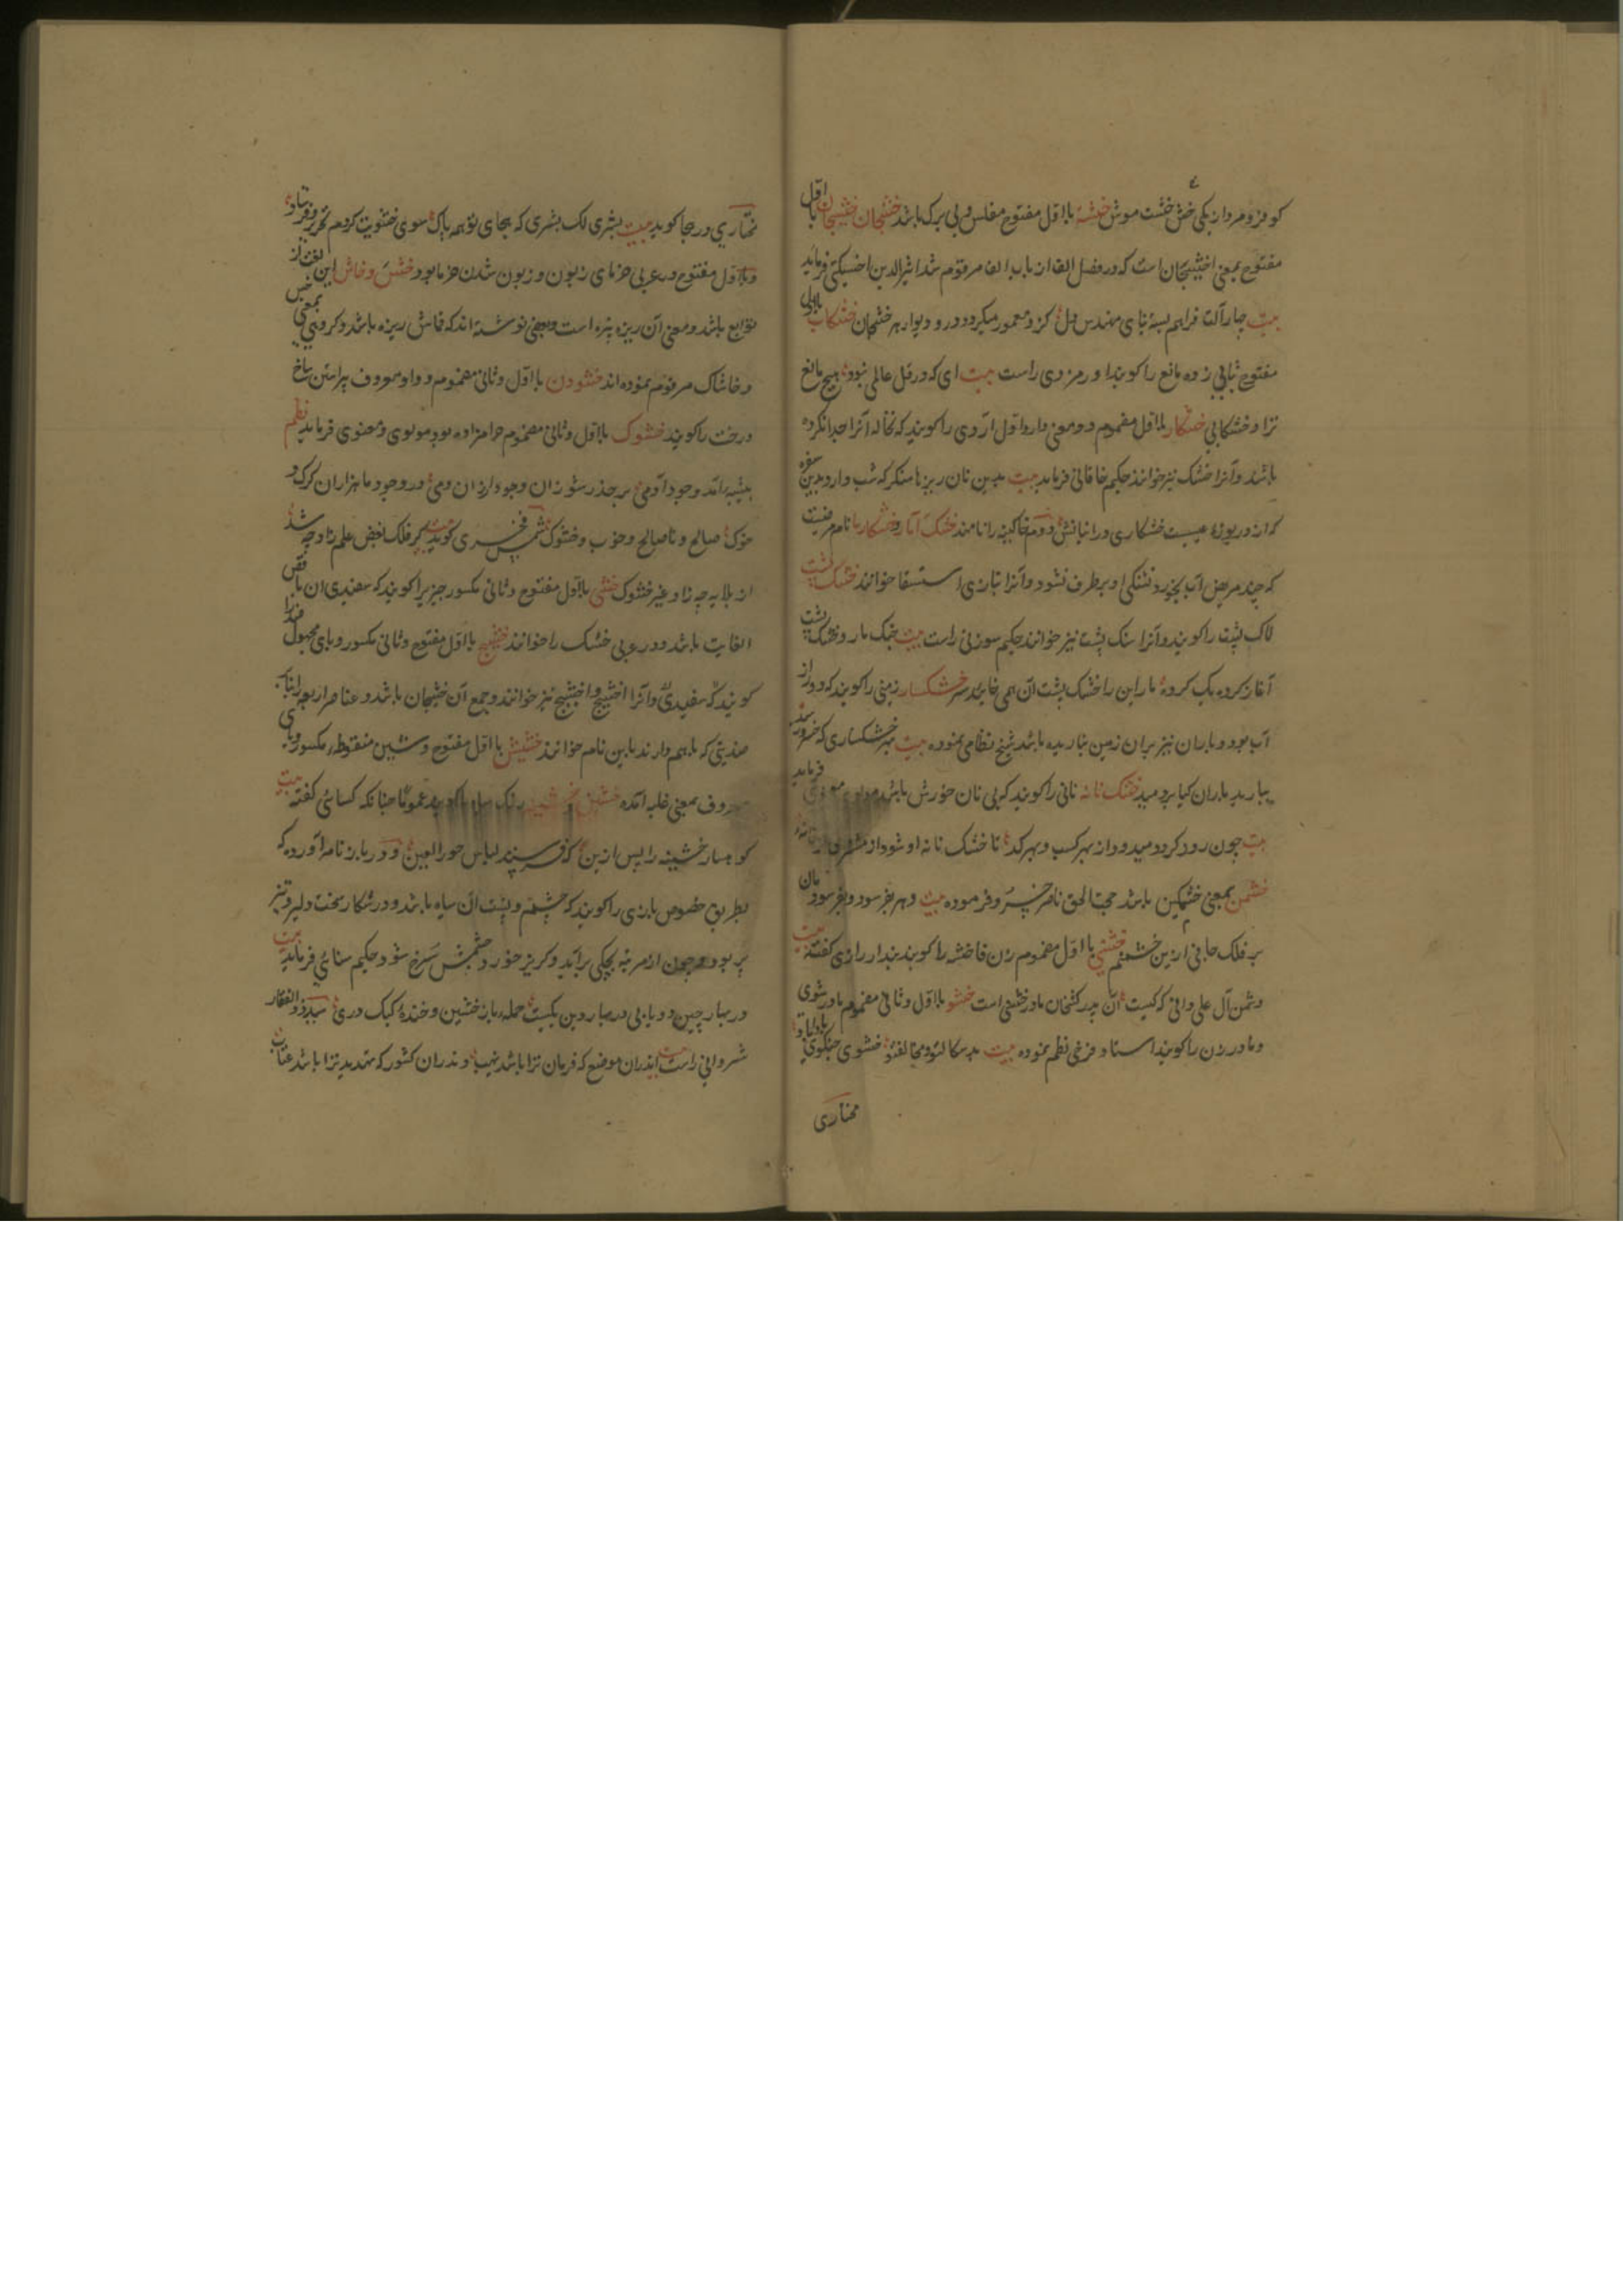 کو فرومرد از یکی خش خشت موش خشنه با اول مفتوح مفلس و بی برک باشد خشنجان خشیجان با اول
مفتوح بمعنی اخشیجان است که در فصل الف از باب الف مرقوم شد اثیرالدین اخسیکتی فرماید
بیت چار آلت فراهم بسته بنای مهندس دل کزو معمور میکردد در و دیوار هر خشجان خشکاب با اول
مفتوح بثانی زده مانع را کویند اورمزدی راست بیت ای که در قل عالمی نبود هیچ مانع
ترا و خشکابی خشکار با اول مضموم دو معنی دارد اول آردی را کویند که نخاله آنرا جدا نکرده
باشند و آنرا خشک نیز خوانند حکیم خاقانی فرماید بیت بدین نان ریزها منکر که شب دارد بدین سفره
که از دریوزه عیسیست خشکاری در انبانش دوم خاکینه را نامند خشک آمار و خشکامار نام مرضیست
که چند مریض آب بخورد تشنکی او برطرف نشود و آنرا بتازی استسقا خوانند خشک پشت
لاک پشت را کویند و آنرا سنک پشت نیز خوانند حکیم سوزنی راست بیت جنک مار و خشک پشت
آغاز کرده یک کروه مار این را خشک پشت آن همی خاید سر خشکسار زمینی را کویند که دور از
آب بود و باران نیز بران زمین نباریده باشد شیخ نظامی نموده بیت بهر خشکساری که خسرو رسید
ببارید باران کیا بردمید خشک نانه نانی را کویند که بی نان خورش باشد مولوی معنوی فرماید
بیت چون رود کرد و میدود از بهر کسب و بهر کد تا خشک نانه او شود از مشتری
خشمن بمعنی خشمکین باشد حجت الحق ناصر خسرو فرموده بیت دهر بفرسود و بفرسودمان
بر فلک جافی ازین خشمنم خشنی با اول مضموم زن فاحشه را کویند بندار رازی کفته بیت
دشمن آل علی دانی که کیست آن پدر کشخان مادر خشنی است خشو با اول و ثانی مضموم مادر شوی
و مادر زن را کویند استاد فرخی نظم نموده بیت خشوی جنکجوی با داماد
مختاری
مختاری در هجا کوید بیت بشری لک بشری که بجای تو همه پاک سوی خشویت کردم تحریر و فرستاد
و با اول مفتوح در عربی خرمای زبون و زبون شدن خرما بود خشش و خاش این لغت از
توابع باشد و معنی آن ریزه ریزه است و بعضی نوشته اند که خاش ریزه باشد و کروهی بمعنی خس
و خاشاک مرقوم نموده اند خشودن با اول و ثانی مضموم و واو معروف پیراستن شاخ
درخت را کویند خشوک با اول و ثانی مضموم حرامزاده بود مولوی معنوی فرماید نظم
بیشه آمد وجود آدمی بر حذر شو زان وجود ار زان دمی در وجود ما هزاران کرک و
خوک صالح و ناصالح و خوب و خشوک شمس فخری کوید بیت کر فلک بغض علم زاد چه شد
از بلایه چه زاد غیر خشوک خشی با اول مفتوح و ثانی مکسور چیزیرا کویند که سفیدی آن باقصی
الغایت باشد و در عربی خشک را خوانند خشیج با اول مفتوح و ثانی مکسور و یای مجهول ضد را
کویند که سفیدی و آنرا اخشیج و اخشیج نیز خوانند و جمع آن خشیجان باشد و عناصر اربعه را بنابر
ضدیتی که باهم دارند باین نام خوانند خشیش با اول مفتوح و شین منقوطه مکسور و یای
معروف بمعنی غله آمده خشین و خشینه رنک سیاه را کویند عموما چنانکه کسائی کفته بیت
کوهسار خشینه را پس ازین که فرستند لباس حورالعین و در بازنامه آورده که
بطریق خصوص بازی را کویند که چشم و پشت آن سیاه باشد و در شکار سخت دلیر و تیز
پر بود و چون از مرتبه بچکی برآید و کریز خورد چشمش سرخ شود حکیم سنائی فرماید بیت
در بهار چین دو یابی در بهار وین یکیست حمله باز خشین و خنده کبک دری سید ذوالفقار
شروانی راست بیت اندران موضع که فرمان ترا باشد نهیب وندران کشور که تهدید ترا باشد عتاب